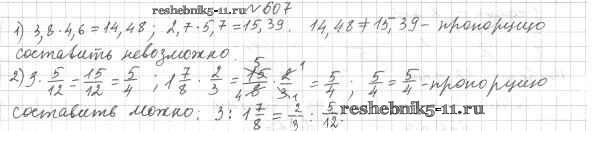 reshebnik5-11.ru №607
1) 3,8 · 4,6 = 14,48; 2,7 · 5,7 = 15,39. 14,48 ≠ 15,39 - пропорцию
составить невозможно.
2) 3 · 5/12 = 15/12 = 5/4; 1 7/8 · 2/3 = 15/8 · 2/3 = 5/4; 5/4 = 5/4 - пропорцию
составить можно: 3 : 1 7/8 = 2/3 : 5/12. reshebnik5-11.ru